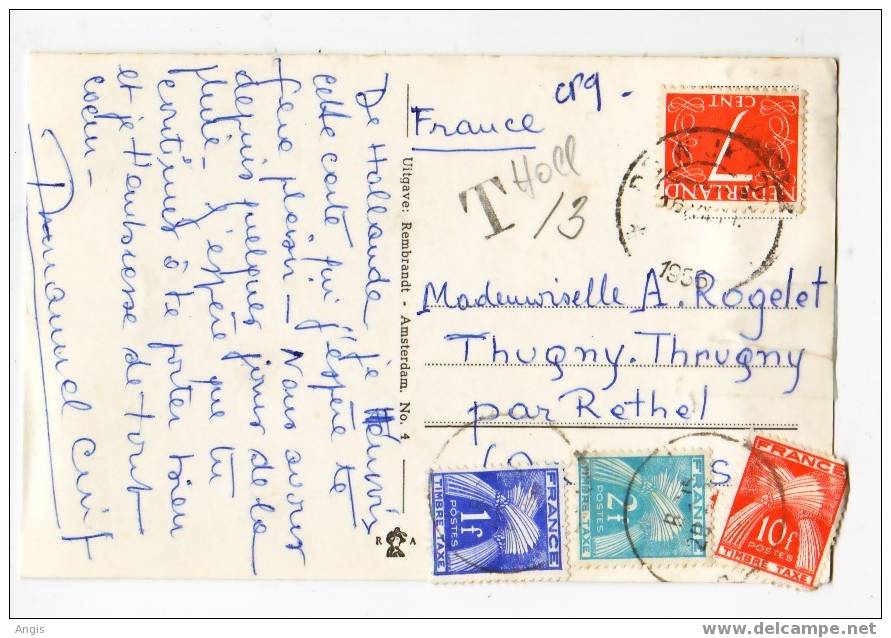 De Hollande, je t'envois
cette carte qui j'espère te
fera plaisir - Nous avons
depuis quelques jours de la
pluie - J'espère que tu
continues à te porter bien
et je t'embrasse de tout
coeur -
Uitgave: Rembrandt - Amsterdam. No. 4
R A
France
T
Holl
/3
7
CENT
NEDERLAND
1956
Mademoiselle A. Rogelet
Thugny-Thrugny
par Rethel
1f
POSTES
FRANCE
TIMBRE TAXE
2f
POSTES
FRANCE
TIMBRE TAXE
FRANCE
10f
POSTES
TIMBRE TAXE
Angis
www.delcampe.net